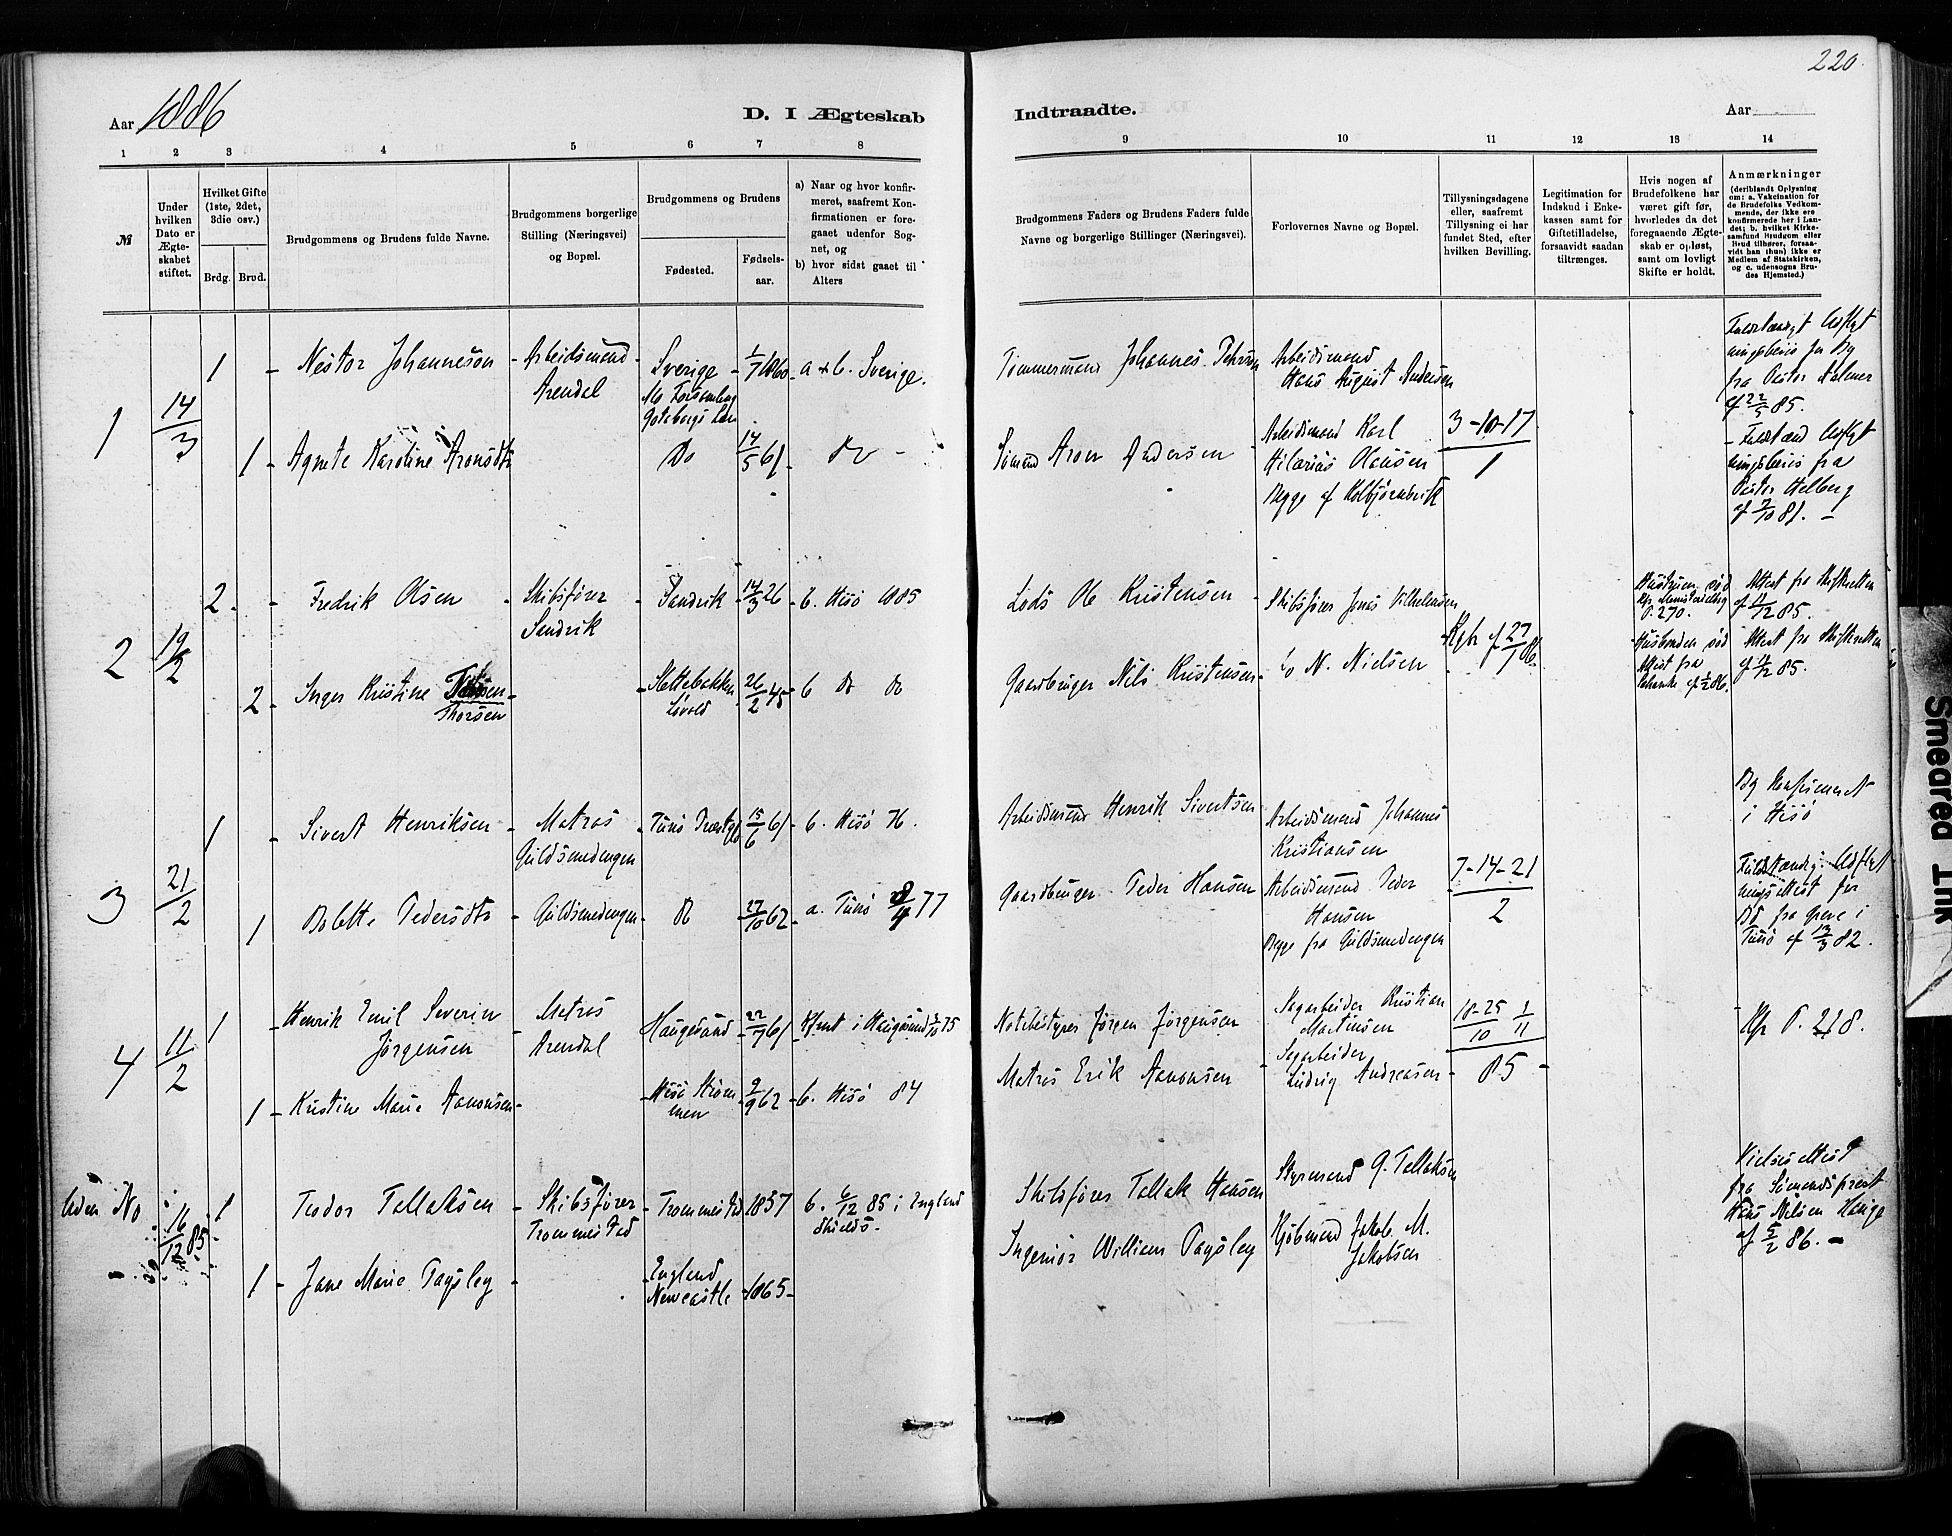 220.
Aar 1886
D. I Ægteskab
Indtraadte.
Aar
1 2 3 4 5 6 7 8
9 10 11 12 13 14
№
Under hvilken Dato er Ægteskabet stiftet.
Hvilket Gifte (1ste, 2det, 3die osv.)
Brdg. Brud.
Brudgommens og Brudens fulde Navne.
Brudgommens borgerlige Stilling (Næringsvei) og Bopæl.
Brudgommens og Brudens
Fødested.
Fødselsaar.
a) Naar og hvor konfirmeret, saafremt Konfirmationen er foregaaet udenfor Sognet, og
b) hvor sidst gaaet til Alters
Brudgommens Faders og Brudens Faders fulde Navne og borgerlige Stillinger (Næringsvei).
Forlovernes Navne og Bopæl.
Tillysningsdagene eller, saafremt Tillysning ei har fundet Sted, efter hvilken Bevilling.
Legitimation for Indskud i Enkekassen samt for Giftetilladelse, forsaavidt saadan tiltrænges.
Hvis nogen af Brudefolkene har været gift før, hvorledes da det foregaaende Ægteskab er opløst, samt om lovligt Skifte er holdt.
Anmærkninger (deriblandt Oplysning om: a. Vakcination for de Brudefolks Vedkommende, der ikke ere konfirmerede her i Landet; b. hvilket Kirkesamfund Brudgom eller Brud tilhører, forsaavidt han (hun) ikke er Medlem af Statskirken, og c. udensogns Brudes Hjemsted.)
1 14/3 1 - Nestor Johanneson - Arbeidsmand Arendal
Sverige - 1/7 1860 - a & b. Sverige.
Tømmermand Johannes
Arbeidsmand Hans August Andersen
af 22/5 85.
1 - Agnete Karoline Aronsdtr
Do 14/5 61 - Do -
Sømand Aron Andersen
Arbeidsmand Karl Hilarius Olausen
Begge af Kolbjørnsvik
3-10-17
1
Pastor Helberg
af 7/10 81. -
2 19/2 2 - Fredrik Olsen - Skibsfører Sandvik
Sandvik - 14/3 26 - b. Hisø 1885
Lods Ole Kristensen - Skibsfører Jonas Vilhelmsen
P. 270.
Attest fra Skifteretten af 11/12 85.
2 - Inger Kristine
Thorsen
Slettebakken
26/2 45 - b Do Do
Gaardbruger Nils Kristensen -
N. Nielsen
Attest fra Skifteretten af 11/12 85.
3 21/2 1 - Sivert Henriksen - Matros Guldsmedengen
15/6 61 - b. Hisø 76.
Arbeidsmand Henrik Sivertsen
Arbeidsmand Johannes Kristiansen
Bg konfirmeret i Hisø
1 Bolette Pedersdtr - Guldsmedengen - Do 27/10 62 - a.
77
Gaardbruger Peder Hansen
Arbeidsmand Peder Hansen
Begge fra Guldsmedengen
7-14-21
2
82.
4 11/2 1 - Henrik Emil Severin Jørgensen
Matros Arendal
Haugesund 22/7 61
i Haugesund
75
Jørgen Jørgensen
Sagarbeider Kristian Martinsen
18-25/10 1/11
85 -
P. 218.
1 - Kristine Marie Aanonsen -
9/9 62 - b. Hisø 84
Matros Erik Aanonsen
Sagarbeider Ludvig Andreasen -
Uden No 16/12 85 1 Teodor Tallaksen - Skibsfører Trommestad
- Trommestad 1857 b. 6/12 85 i England Shields.
Skibsfører Tallak Hansen
Styrmand G. Tallaksen
Vielsesattest fra Sømandsprest Hans Nilsen Hauge af 5/2 86. -
1 - Jane Marie Pagsley -
- England Newcastle - 1865 -
Ingeniør William Pagsley
Kjøbmand Jakob M. Jakobsen
Smeared Ink